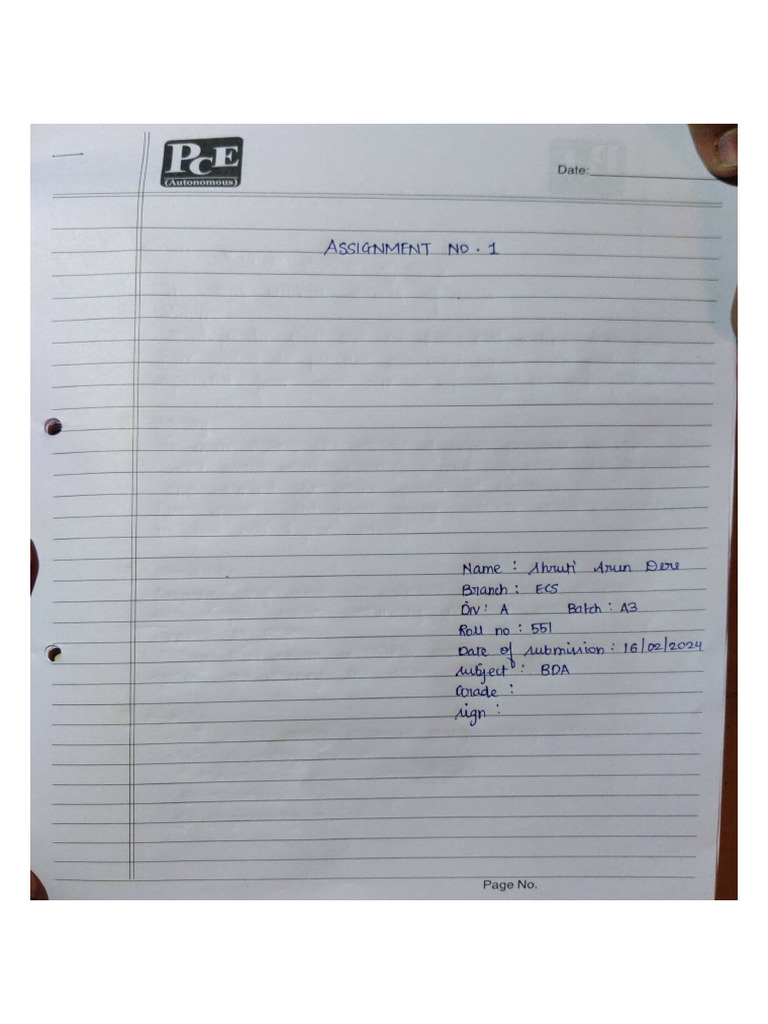 PCE
(Autonomous)
Date:
ASSIGNMENT NO. 1
Name : Shruti Arun Dere
Branch : ECS
Div : A Batch : A3
Roll no : 551
Date of submission : 16/02/2024
Subject : BDA
Grade :
Sign :
Page No.